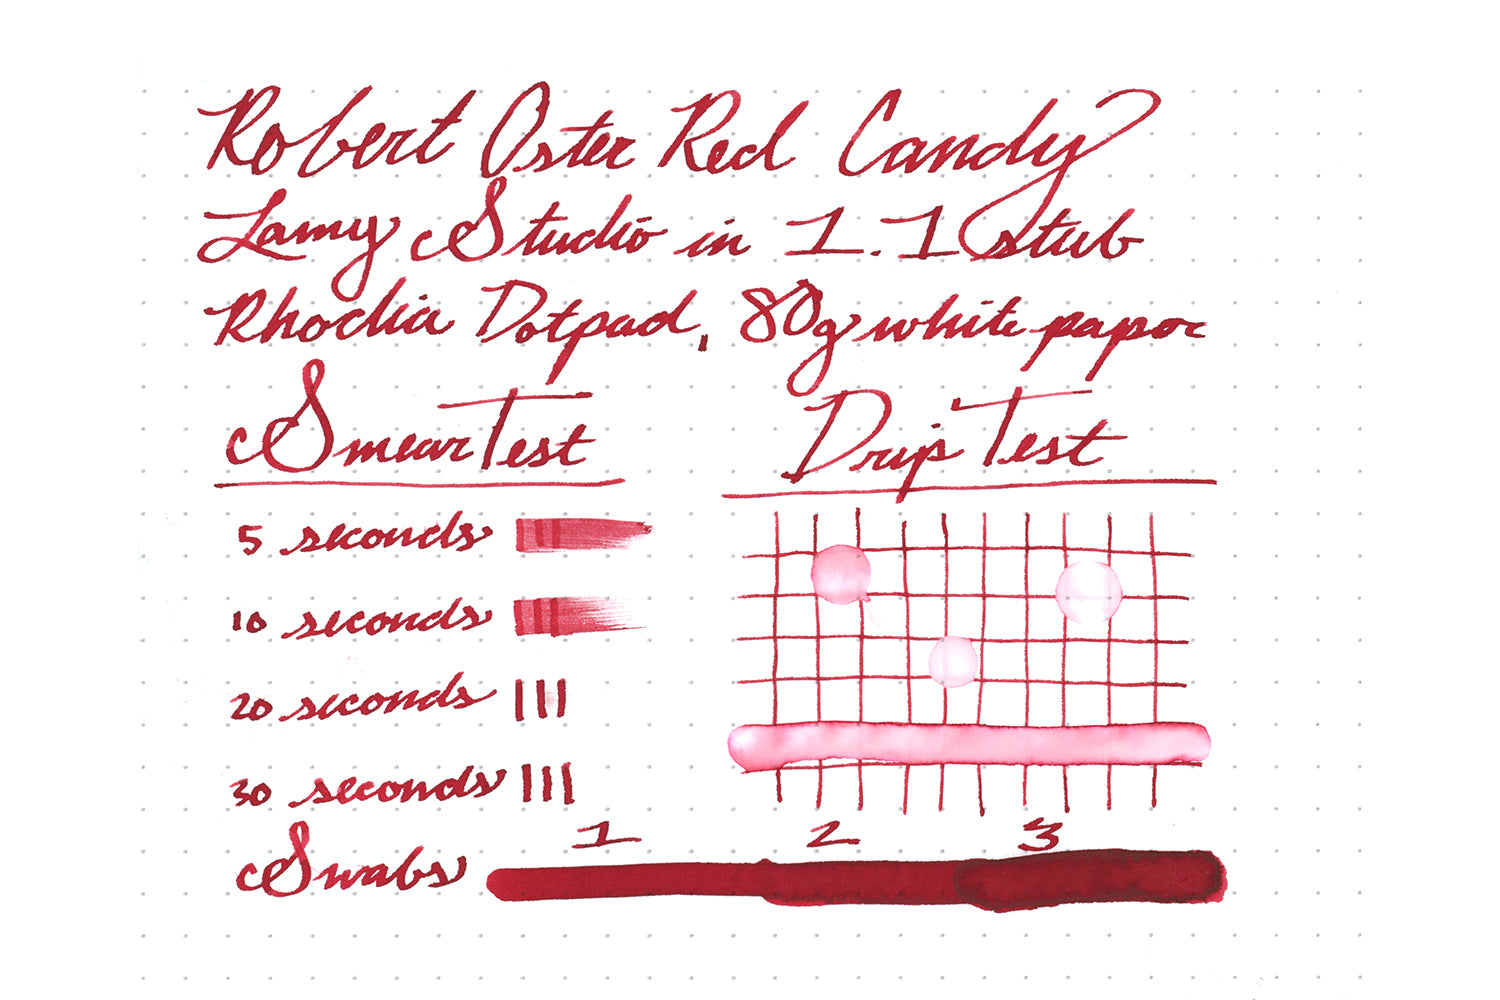 Robert Oster Red Candy
Lamy Studio in 1.1 stub
Rhodia Dotpad, 80g white paper
Smear Test
Drip Test
5 seconds
10 seconds
20 seconds
30 seconds
1 2 3
Swabs